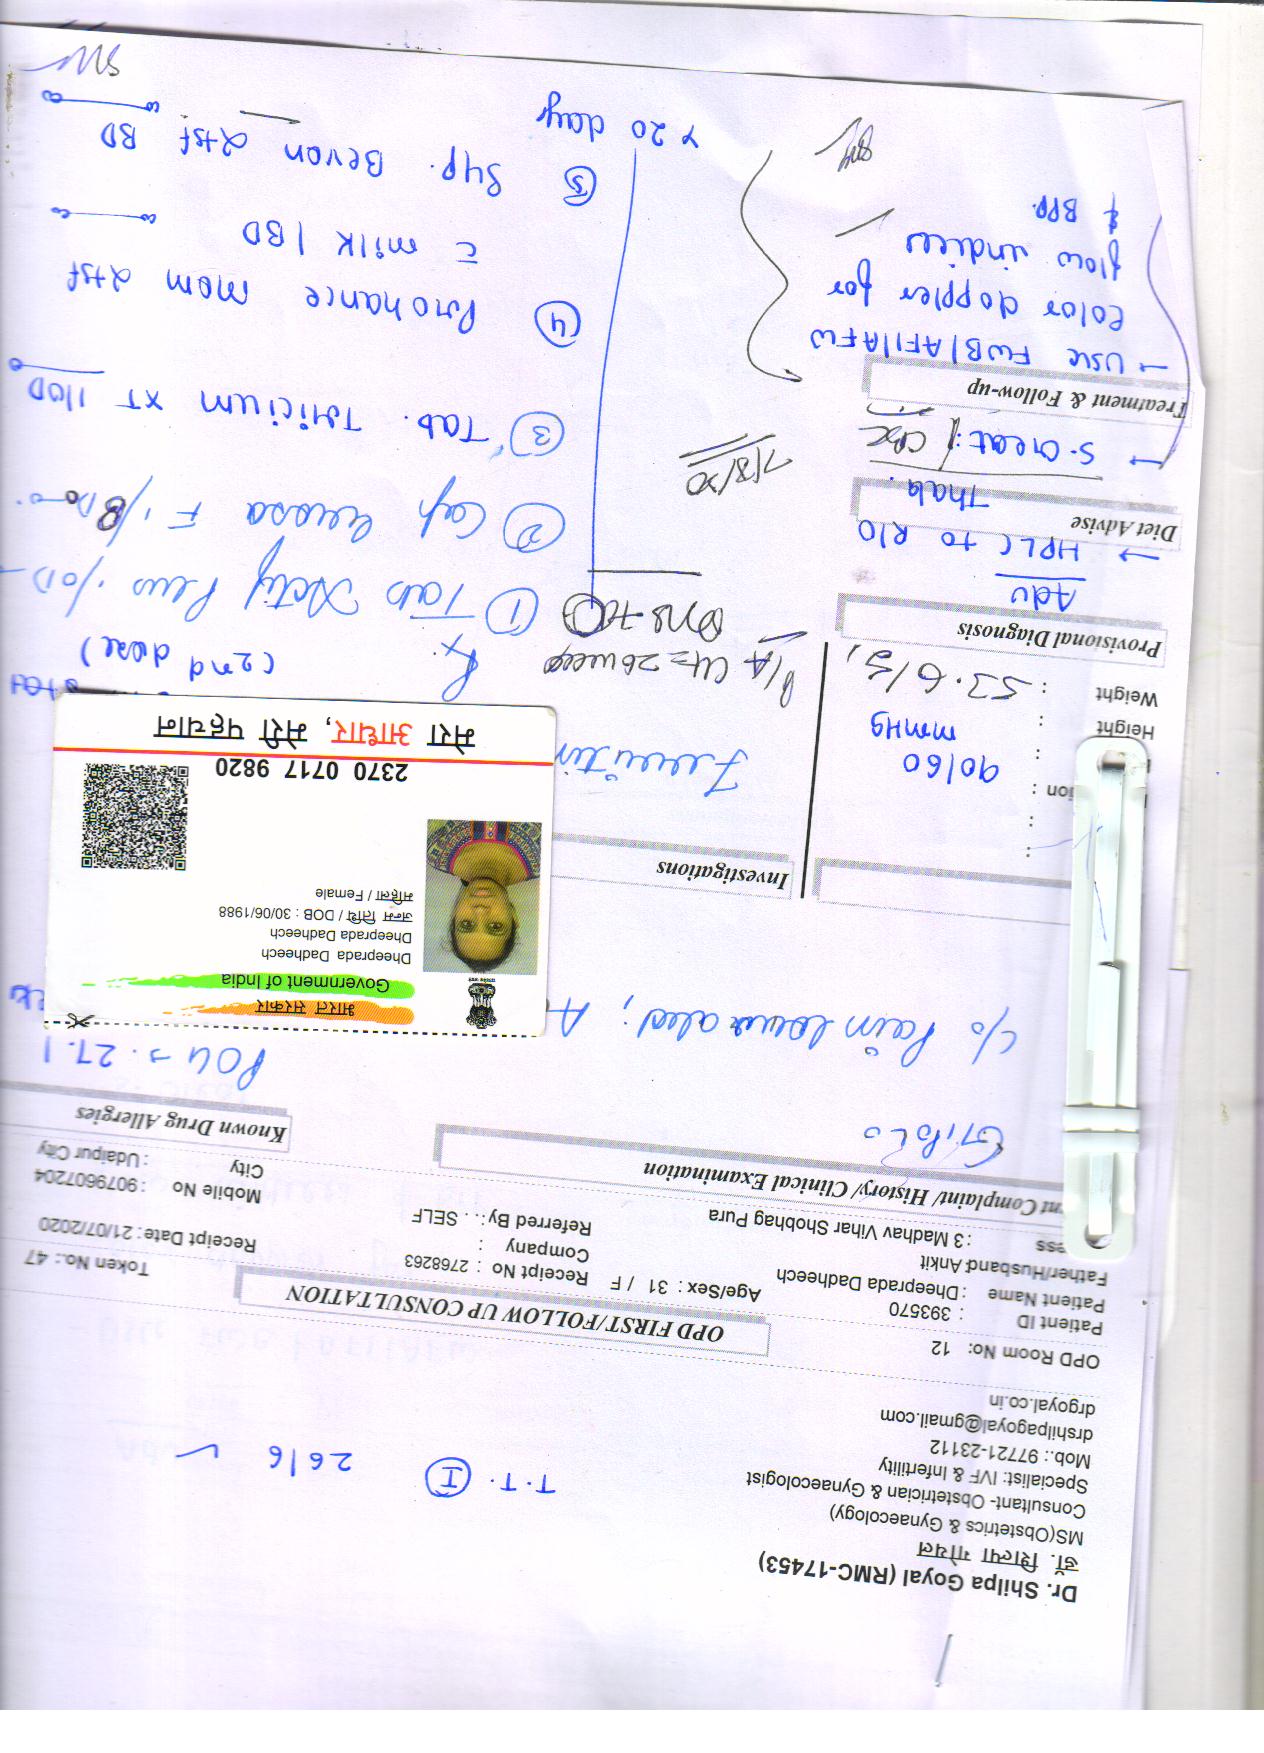 T.T. I 26/6 ✓
Dr. Shilpa Goyal (RMC-17453)
डॉ. शिल्पा गोयल
MS(Obstetrics & Gynaecology)
Consultant- Obstetrician & Gynaecologist
Specialist: IVF & Infertility
Mob.: 97721-23112
drshilpagoyal@gmail.com
drgoyal.co.in
OPD Room No: 12
OPD FIRST/FOLLOW UP CONSULTATION
Token No.: 47
Patient ID : 393570
Patient Name : Dheeprada Dadheech
Age/Sex : 31 / F
Receipt No : 2768263
Receipt Date : 21/07/2020
Father/Husband: Ankit
Company :
Mobile No : 9079607204
ess : 3 Madhav Vihar Shobhag Pura
Referred By : . . SELF
City : Udaipur City
nt Complaint/ History/ Clinical Examination
Known Drug Allergies
G1P0L0
POG → 27.1
c/o Pain lower abd; A
Investigations
tion : 90/60
mmHg
Height :
Weight : 53.6/5,
P/A Ut = 26 weeks
Provisional Diagnosis
Adv
→ HPLC to R/O
Thala.
Diet Advise
→ S. Creat; / CBC
7/8/20
Treatment & Follow-up
→ USG FWB/AFI/AFW
color doppler for
flow indices
& BPP.
(2nd dose)
Rx
① Tab Actif Plus 1 OD
②
③ Tab. Tricium XT 1 OD
④ Prohance mom 2tsf
c̄ milk / BD
⑤ Syp. Bevon 2tsf BD
x 20 day
भारत सरकार
Government of India
Dheeprada Dadheech
Dheeprada Dadheech
जन्म तिथि / DOB : 30/06/1988
महिला / Female
2370 0717 9820
मेरा आधार, मेरी पहचान